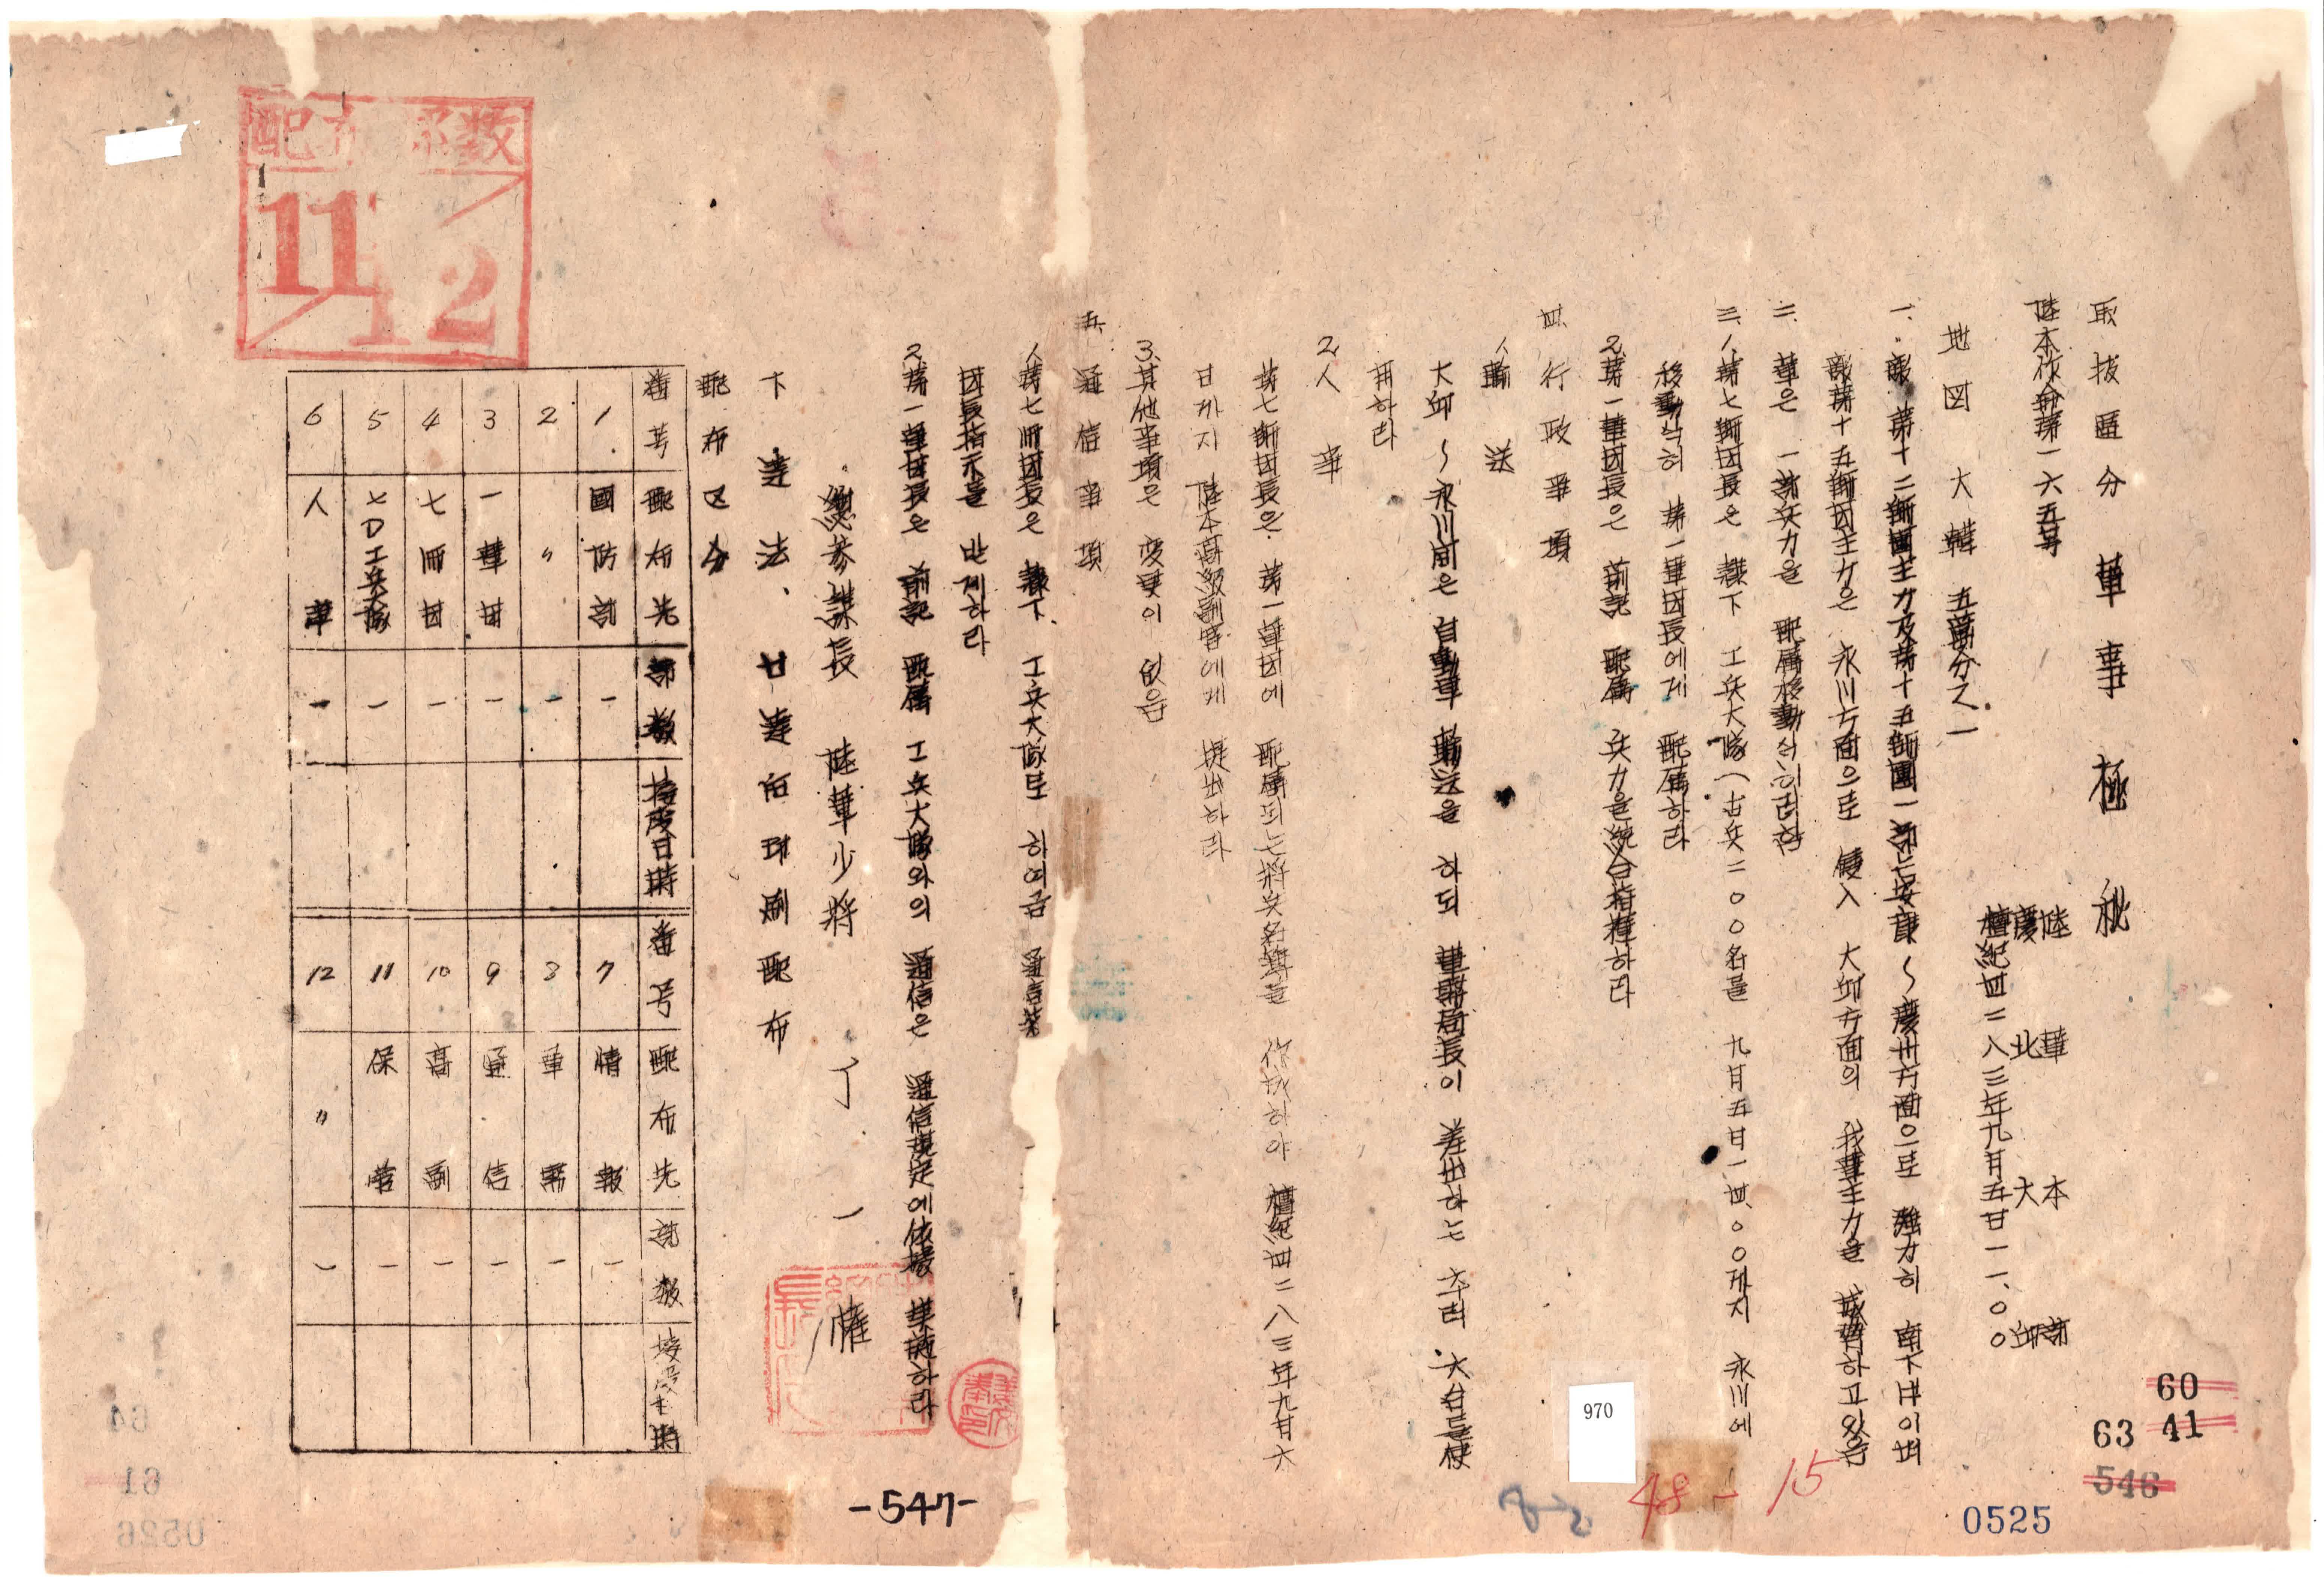 取扱區分 軍事極秘
陸軍本部
慶北 大邱
檀紀四二八三年九月五日一一、〇〇
陸本作命第一六五号
地図 大韓 五萬分之一
一、敵 第十二師團主力及第十五師團一部는 安康〜慶州方面으로 強力히 南下中이며
敵第十五師団主力은 永川方面으로 侵入 大邱方面의 我軍主力을 威脅하고있음
二、軍은 一部兵力을 配属移動식히려함
三、1、第七師団長은 隷下 工兵大隊(古兵二〇〇名를 九月五日一四、〇〇까지 永川에
移動식히 第一軍団長에게 配属하라
2、第一軍団長은 前記 配属 兵力을 統合指揮하라
四、行政事項
1、輸送
大邱〜永川間은 自動車 輸送을 하되 軍需局長이 差出하는 추럭 大台를使
用하라
2、人事
第七師団長은 第一軍団에 配属되는將兵名簿를 作成하야 檀紀四二八三年九月六
日까지 陸本高級副官에게 提出하라
3、其他事項은 変更이 없음
五、通信事項
1、第七師団長은 隷下 工兵大隊로 하여금 通信
団長指示를 받게하라
2、第一軍団長은 前記 配属 工兵大隊와의 通信은 通信規定에依據 実施하라
總参謀長 陸軍少將 丁一權
下達法、 廿達 印刷配布
配布区分
番号 配布先 部数 接受日時 番号 配布先 部数 接受日時
1 國防部 一 7 情報 一
2 〃 一 8 軍需 一
3 一軍団 一 9 通信 一
4 七師団 一 10 高副 一
5 七D工兵隊 一 11 保管 一
6 人軍 一 12 〃 一
配布部数
11/12
-547-
970
48-15
60
63 41
546
0525